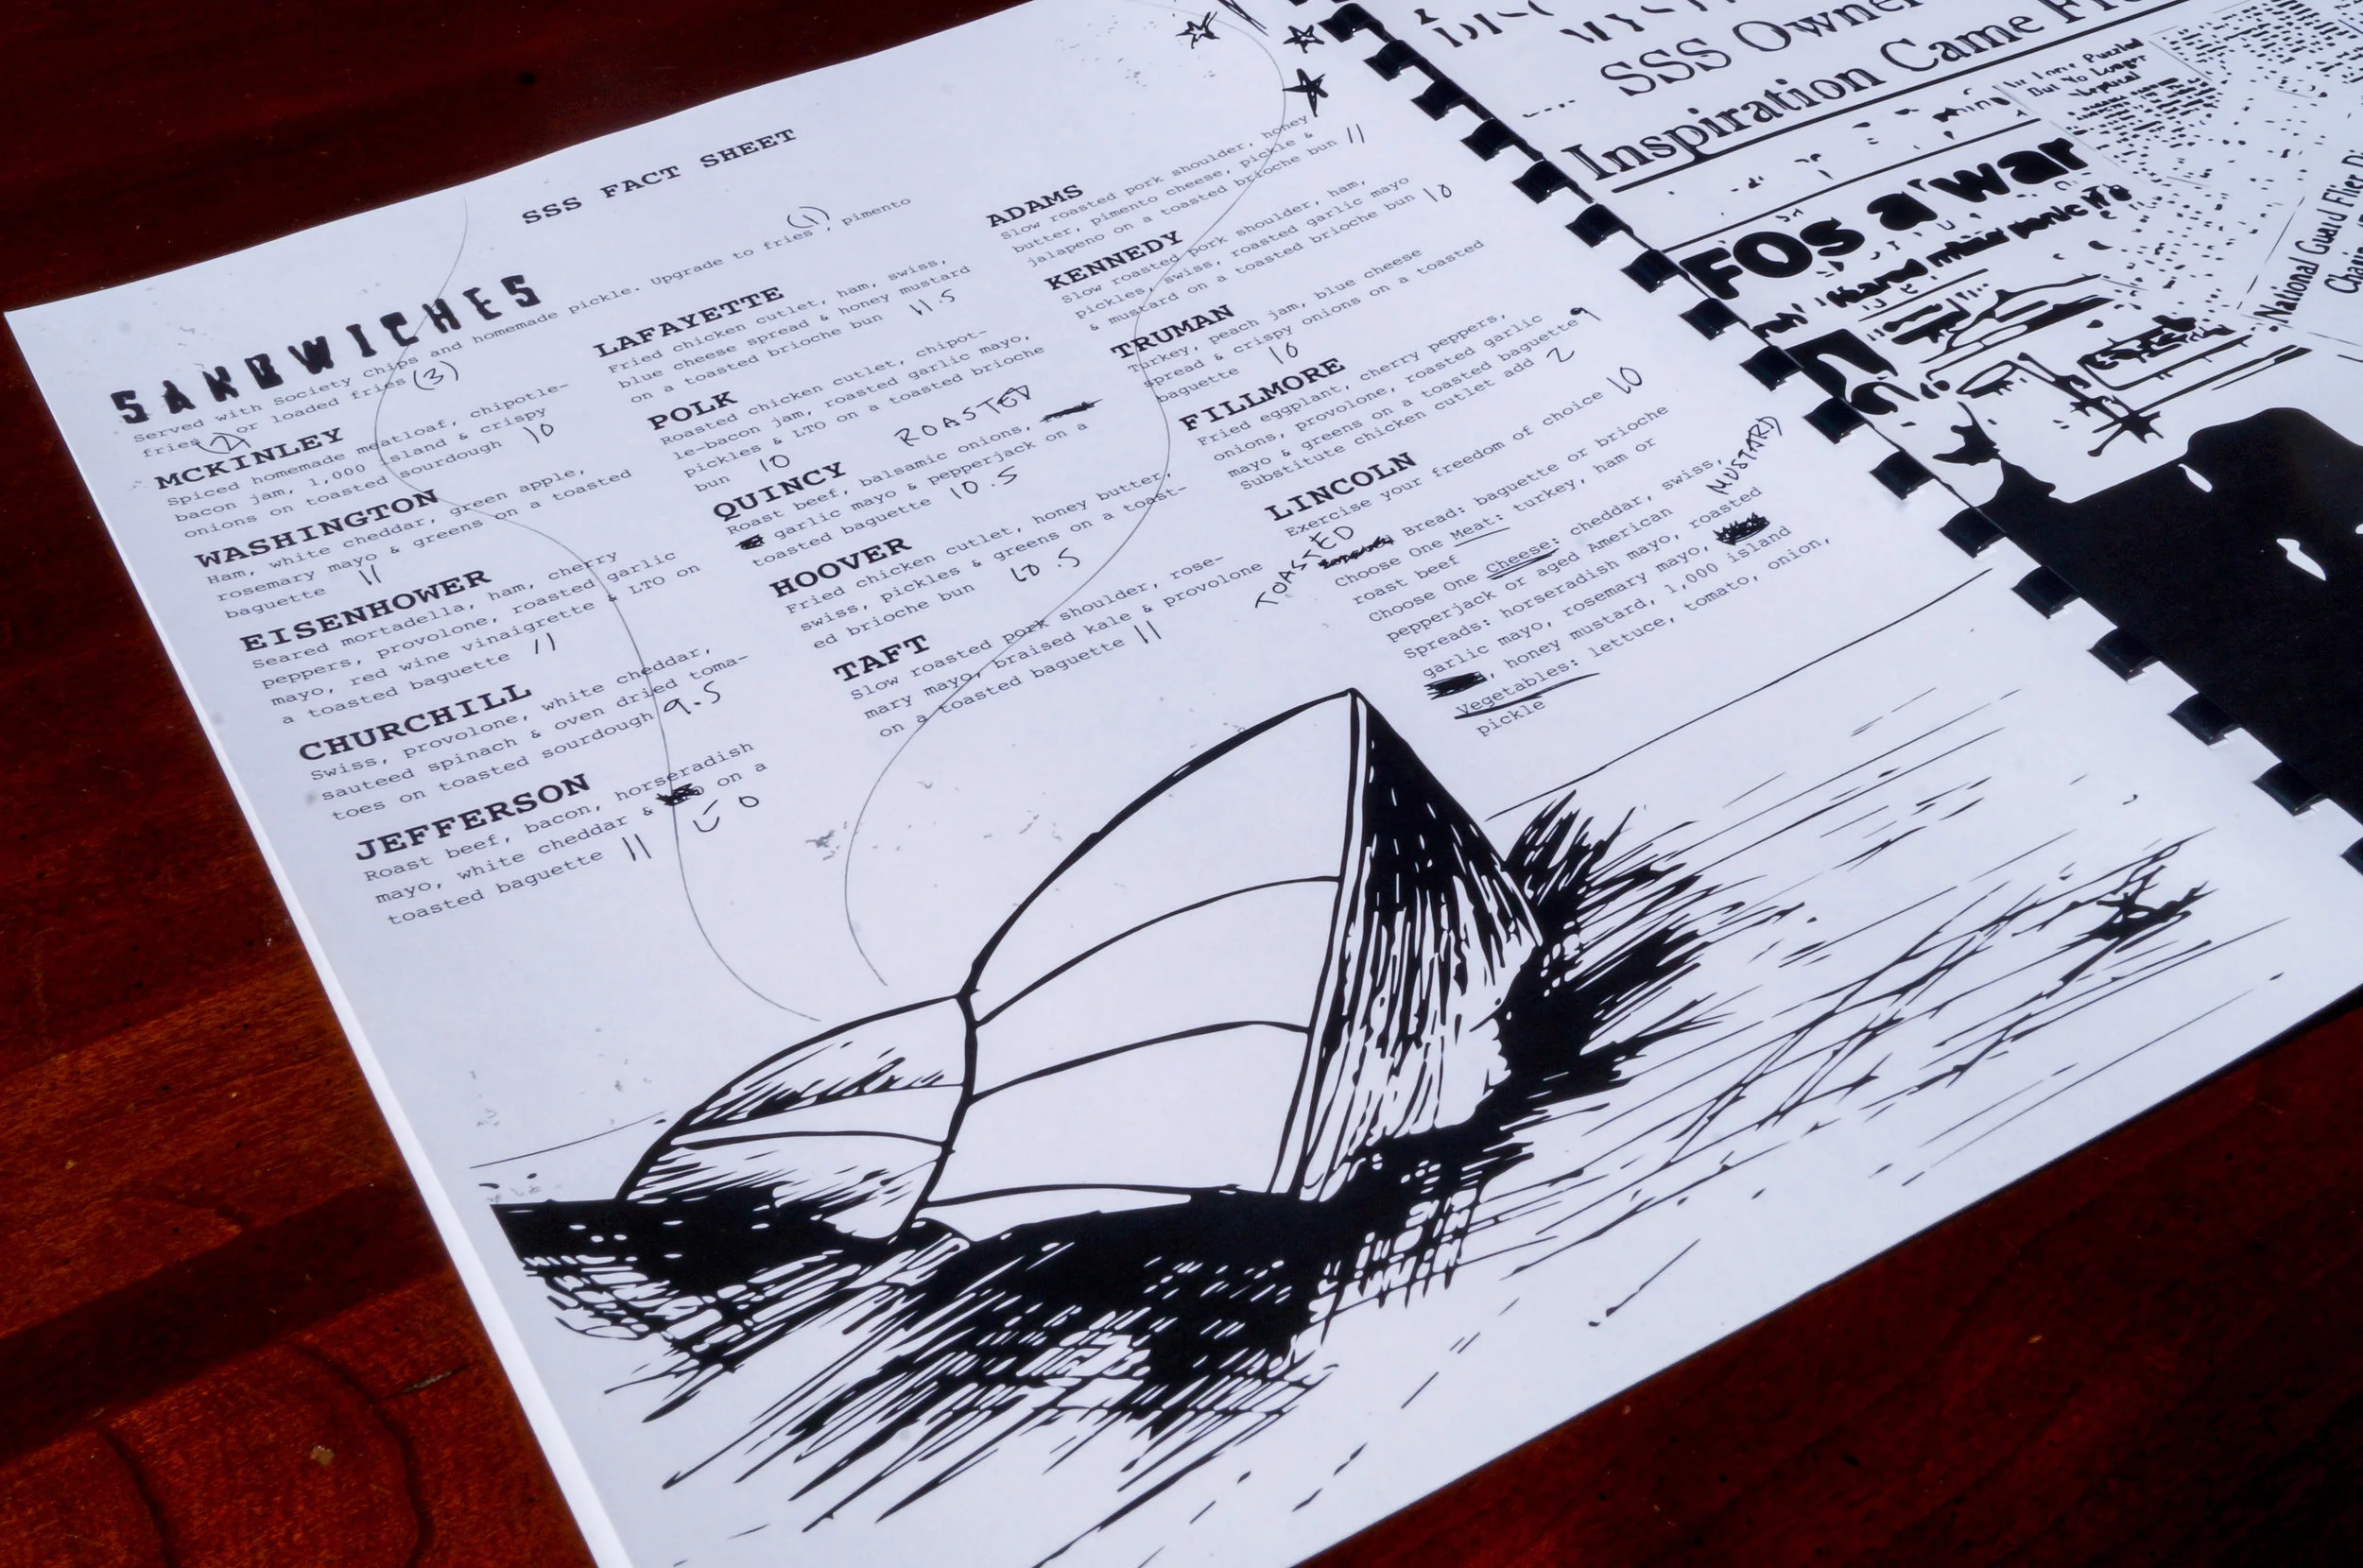 SSS FACT SHEET
SANDWICHES
Served with Society Chips and homemade pickle. Upgrade to fries (1), pimento
fries (2) or loaded fries (3)
MCKINLEY
Spiced homemade meatloaf, chipotle-
bacon jam, 1,000 island & crispy
onions on toasted sourdough 10
WASHINGTON
Ham, white cheddar, green apple,
rosemary mayo & greens on a toasted
baguette 11
EISENHOWER
Seared mortadella, ham, cherry
peppers, provolone, roasted garlic
mayo, red wine vinaigrette & LTO on
a toasted baguette 11
CHURCHILL
Swiss, provolone, white cheddar,
sauteed spinach & oven dried toma-
toes on toasted sourdough 9.5
JEFFERSON
Roast beef, bacon, horseradish
mayo, white cheddar & on a
toasted baguette 11
LAFAYETTE
Fried chicken cutlet, ham, swiss,
blue cheese spread & honey mustard
on a toasted brioche bun 11.5
POLK
Roasted chicken cutlet, chipot-
le-bacon jam, roasted garlic mayo,
pickles & LTO on a toasted brioche
bun 10
ROASTED
QUINCY
Roast beef, balsamic onions,
garlic mayo & pepperjack on a
toasted baguette 10.5
HOOVER
Fried chicken cutlet, honey butter,
swiss, pickles & greens on a toast-
ed brioche bun 10.5
TAFT
Slow roasted pork shoulder, rose-
mary mayo, braised kale & provolone
on a toasted baguette 11
ADAMS
Slow roasted pork shoulder, honey
butter, pimento cheese, pickle &
jalapeno on a toasted brioche bun 11
KENNEDY
Slow roasted pork shoulder, ham,
pickles, swiss, roasted garlic mayo
& mustard on a toasted brioche bun 10
TRUMAN
Turkey, peach jam, blue cheese
spread & crispy onions on a toasted
baguette 10
FILLMORE
Fried eggplant, cherry peppers,
onions, provolone, roasted garlic
mayo & greens on a toasted baguette 9
Substitute chicken cutlet add 2
LINCOLN
Exercise your freedom of choice 10
TOASTED Bread: baguette or brioche
Choose One Meat: turkey, ham or
roast beef
Choose One Cheese: cheddar, swiss,
pepperjack or aged American
MUSTARD
Spreads: horseradish mayo, roasted
garlic mayo, rosemary mayo,
honey mustard, 1,000 island
Vegetables: lettuce, tomato, onion,
pickle
SSS Owner
Inspiration Came
FOs a war
No Longer
National Guard Flier